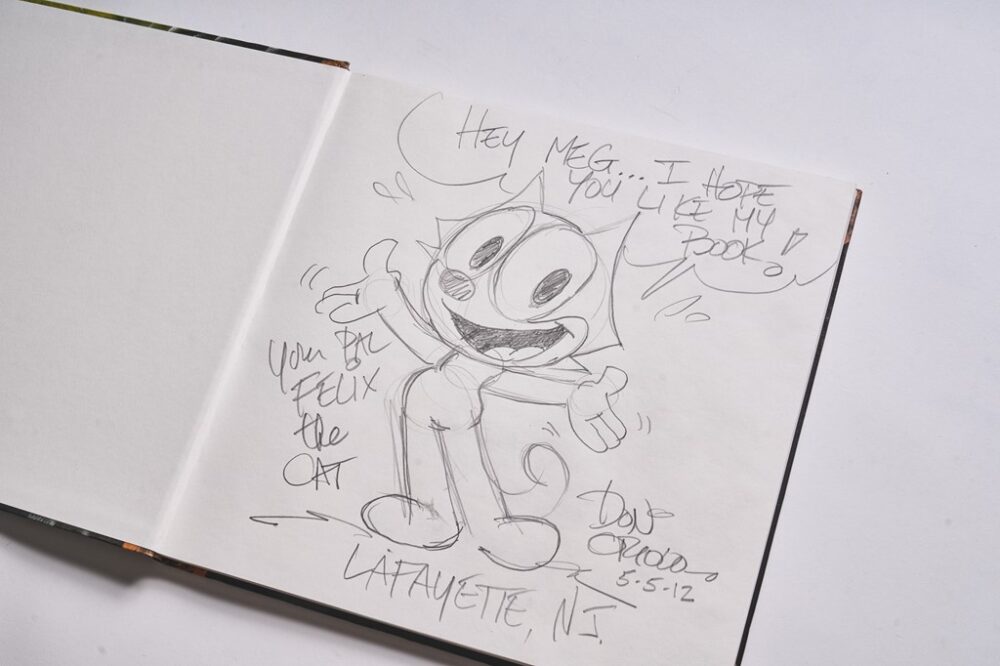 HEY MEG... I HOPE
YOU LIKE MY
BOOK!
YOUR PAL
FELIX
the
CAT
DON
ORIOLO
5-5-12
LAFAYETTE, NJ.